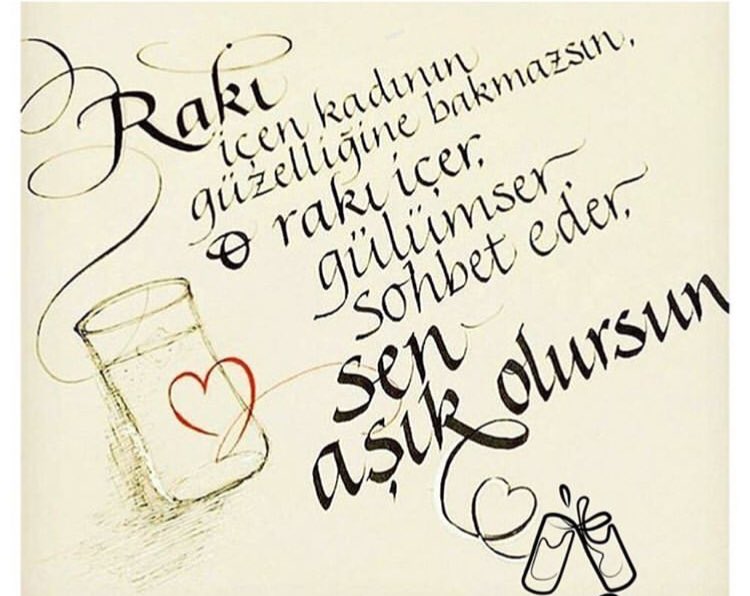 Rakı
içen kadının
güzelliğine bakmazsın,
O rakı içer,
gülümser,
sohbet eder,
sen
aşık olursun